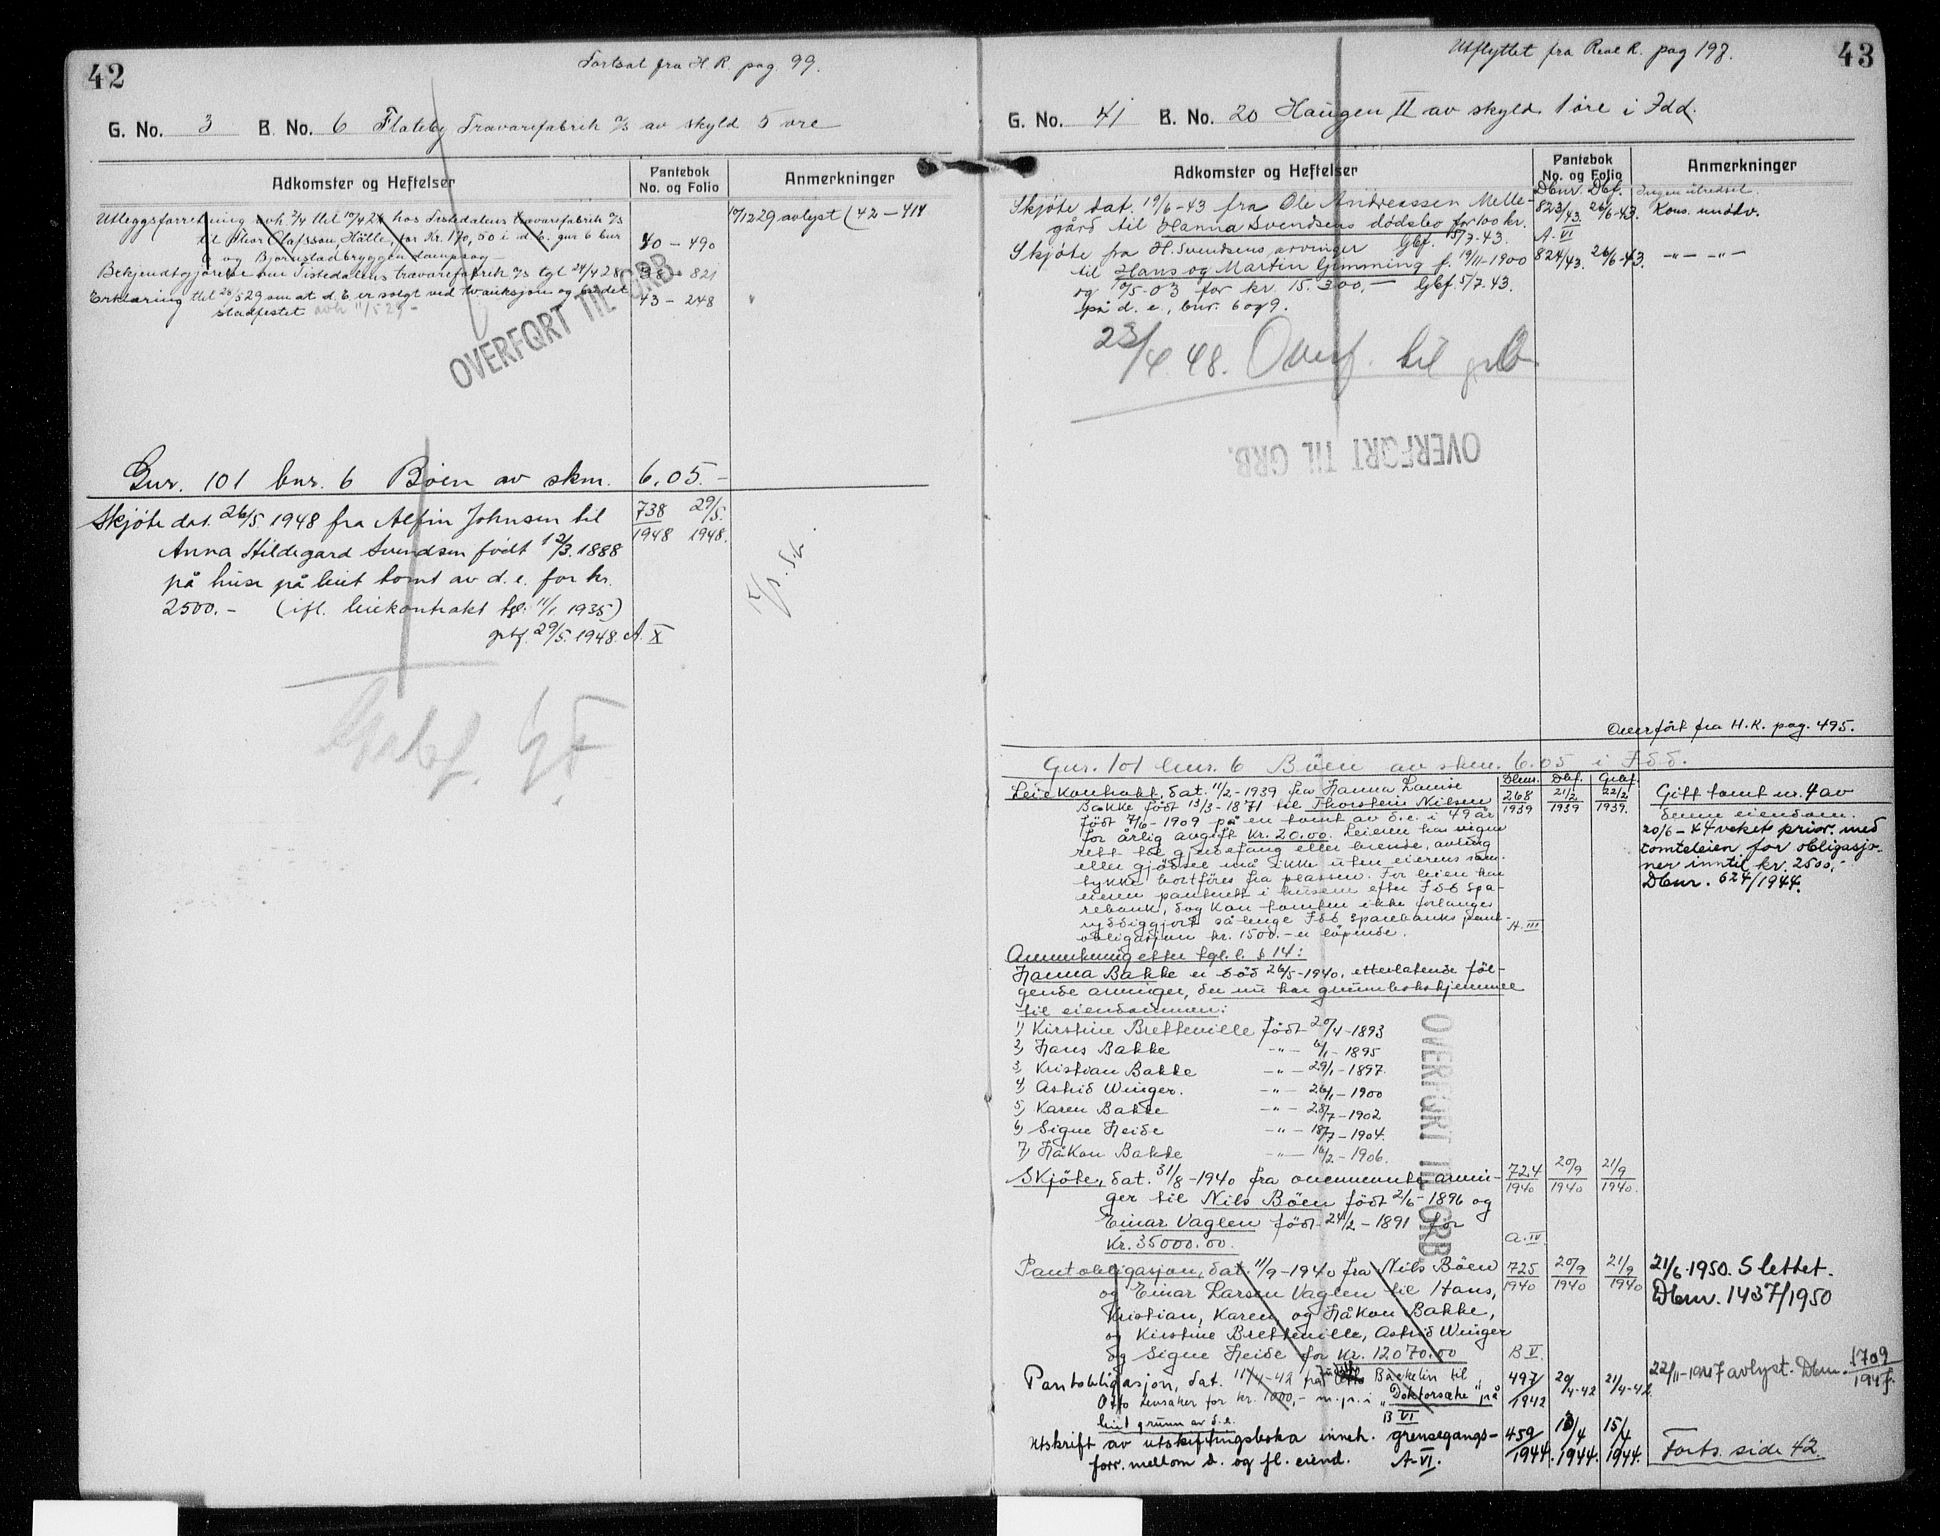 42
Fortsat fra H.R. pag. 99.
G. No. 3 B. No. 6 Flateby Trævarefabrik A/S av skyld 5 øre
Adkomster og Heftelser
Pantebok
No. og Folio
Anmerkninger
Utleggsforretning avh 2/4 tlt 10/4 28 hos Tistedalens trævarefabrik A/S
17/12 29 avlyst (42 – 414
til Thor Olafsson, Hätle, for Kr. 170,50 i d. E. gnr 6 bnr
40 – 490
6 og Bjørnstadbryggen dampsag –
Bekjendtgjørelse om Tistedalens trævarefabrik A/S tgl 24/4 28
38 – 821
Erklæring tlt 28/5 29 om at d. E. er solgt ved tv. auksjon og budet
43 – 248
stadfestet avh 11/5 29 –
OVERFØRT TIL GRB.
Gnr. 101 bnr. 6 Bøen av skm. 6.05.–
Skjøte dat. 26/5 1948 fra Alfin Johnsen til
738/1948 29/5. 1948.
Anna Hildegard Svendsen født 12/3. 1888
på huse på leiet tomt av d. e. for kr.
2500.– (ifl. leiekontrakt tgl. 11/1 1935)
grbf. 29/5. 1948. A. X
43
Utflyttet fra Real R. pag 197.
G. No. 41 B. No. 20 Haugen II av skyld. 1 øre i Idd.
Adkomster og Heftelser
Pantebok
No. og Folio
Anmerkninger
Dbnr. Dbf.
Ingen utredsel.
Skjøte dat. 19/6-43 fra Ole Andreassen Melle-
823/43. 26/6-43.
Kons. unødv.
gård til Hanna Svendsens dødsbo for 100 kr.
Gbf. 15/7-43.
A-VI
Skjøte fra H. Svendsens arvinger
824/43. 26/6-43.
–„– –„–
til Hans og Martin Gimming f. 19/11-1900
og 10/5-03 for kr. 15.300,– Gbf. 5/7-43.
på d. e., bnr. 6 og 9.
23/4. 48. Overf. til grb
OVERFØRT TIL GRB.
Overført fra H.R. pag. 495.
Gnr. 101 bnr. 6 Böen av skm. 6.05 i Idd.
Dbnr. Dbf. Grbf.
Leiekontrakt, dat. 11/2-1939 fra Hanna Lovise
268/1939 21/2 1939 22/2 1939.
Gitt tomt nr. 4 av
Bakke født 13/3-1871 til Thorstein Nilsen
denne eiendom.
født 7/6-1909 på en tomt av d.e. i 49 år
20/6-44 veket prior. med
for årlig avgift Kr. 20.00. Leieren har ingen
tomteleien for obligasjo-
rett til gjerdefang eller brende, avling
ner inntil kr. 2500,-
eller gjödsel må ikke uten eierens sam-
Dbnr. 624/1944.
tykke bortföres fra plassen. For leien har
eieren panterett i husene efter Idd Spa-
rebank, dog kan tomten ikke forlanges
ryddiggjort så lenge Idd Sparebanks pant-
obligasjon kr. 1500.– er löpende.
A. III
Anmerkning efter tgl. l. § 14:
Hanna Bakke er död 26/5-1940, etterlatende föl-
gende arvinger, der nu har grunnbokshjemmel
til eiendommen:
1) Kirstine Bretteville født 20/4-1893
2) Hans Bakke –„– 6/1-1895
3) Kristian Bakke –„– 29/1-1897.
4) Astrid Winger. –„– 26/1-1900
5) Karen Bakke –„– 28/7-1902
6) Signe Heide –„– 18/7-1904.
7) Håkon Bakke –„– 16/2-1906.
Skjöte, dat. 31/8-1940 fra ovennevnte arvin-
724/1940 20/9 1940 21/9 1940.
ger til Nils Böen født 2/6-1896 og
Einar Vaglen født 24/2-1891 for
Kr. 35000.00.
A. IV.
OVERFØRT TIL GRB.
Pantobligasjon, dat. 11/9-1940 fra Nils Böen
725/1940 20/9 1940 21/9 1940
21/6. 1950. Slettet.
og Einar Larsen Vaglen til Hans,
Dbnr. 1437/1950
Kristian, Karen og Håkon Bakke,
og Kirstine Bretteville, Astrid Winger
og Signe Heide for Kr. 12070.00
B V.
Pantobligasjon, dat. 11/4-42 fra Backelin til
497/1942 20/4-42 21/4-42.
22/11-1947 avlyst. Dbnr. 1709/1947.
Otto Levsaker for kr. 1000,– m. p. i „Doktorsætre" på
leiet grunn av d.e.
B VI
Utskrift av utskiftingsboka inneh. grensegangs-
459/1944. 13/4 1944. 15/4 1944.
forr. mellom d. og fl. eiend. A-VI.
Forts. side 42.